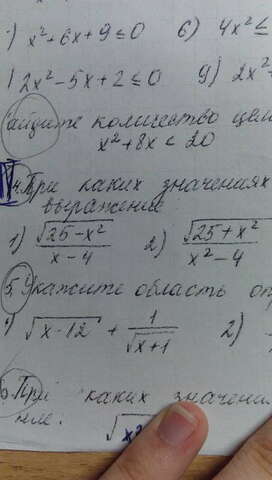 ) x² + 6x + 9 ≤ 0 6) 4x² ≤
) 2x² - 5x + 2 ≤ 0 9) 2x²
айдите количество цел
x² + 8x < 20
4. При каких значениях
выражение:
1) √(25 - x²) / (x - 4) 2) √(25 + x²) / (x² - 4)
5. Укажите область оп
) √(x - 12) + 1/√(x + 1) 2)
6. При каких значени
ние.
√x²